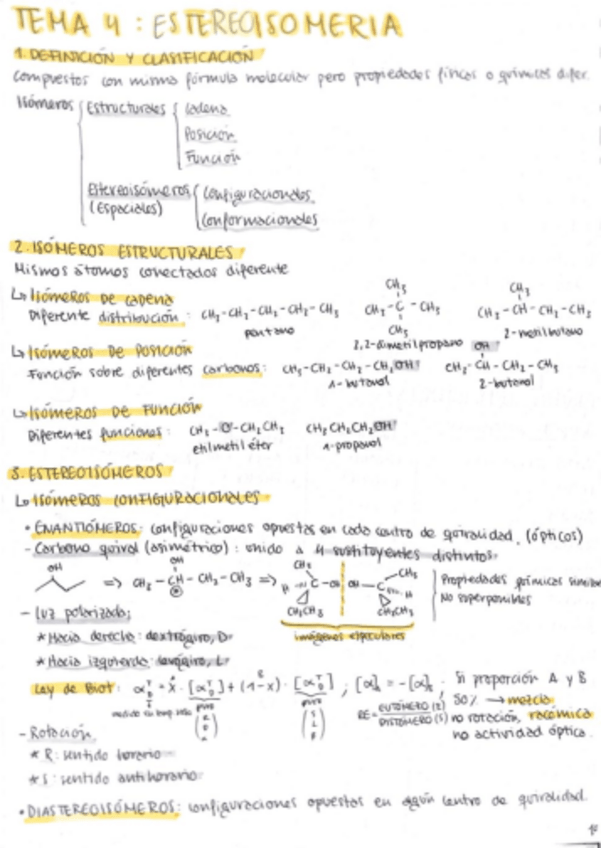 TEMA 4 : ESTEREOISOMERIA
1. DEFINICIÓN Y CLASIFICACIÓN
Compuestos con misma fórmula molecular pero propiedades físicas o químicas difer.
Isómeros Estructurales Cadena
Posición
Función
Estereoisómeros Configuracionales
(Espaciales) Conformacionales
2. ISÓMEROS ESTRUCTURALES
Mismos átomos conectados diferente
↳ Isómeros DE CADENA
Diferente distribución : CH₃-CH₂-CH₂-CH₂-CH₃ CH₃-C-CH₃ CH₃-CH-CH₂-CH₃
CH₃ CH₃ CH₃
pentano 2,2-dimetilpropano 2-metilbutano
↳ Isómeros DE POSICIÓN
Función sobre diferentes carbonos: CH₃-CH₂-CH₂-CH₂OH CH₃-CH-CH₂-CH₃
OH
1-butanol 2-butanol
↳ Isómeros DE FUNCIÓN
Diferentes funciones: CH₃-O-CH₂CH₃ CH₃CH₂CH₂OH
etilmetil éter 1-propanol
3. ESTEREOISÓMEROS
↳ Isómeros CONFIGURACIONALES
• ENANTIÓMEROS: configuraciones opuestas en cada centro de quiralidad. (ópticos)
- Carbono quiral (asimétrico) : unido a 4 sustituyentes distintos.
OH OH CH₃
⇒ CH₃-CH-CH₂-CH₃ ⇒ H C-OH OH-C CH₃ H
CH₂CH₃ CH₂CH₃
Propiedades químicas similares
No superponibles
imágenes especulares
- Luz polarizada:
* Hacia derecha: dextrógiro, D
* Hacia izquierda: levógiro, L
Ley de Biot: + (1-x) · ; [α]A = -[α]B ; Si proporción A y B
50% → mezcla
no rotación, racémica
no actividad óptica.
RE = EUTÓMERO (R) / DISTÓMERO (S)
- Rotación
* R: sentido horario
* S : sentido antihorario
• DIASTEREOISÓMEROS: configuraciones opuestas en algún centro de quiralidad.